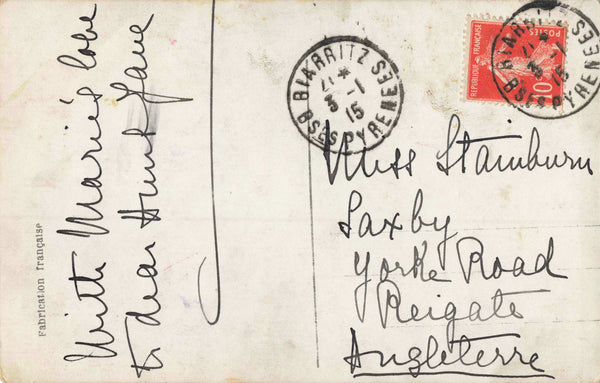 With Marie's love
to dear Aunt Jane
Fabrication française
BIARRITZ
BSES PYRENEES
21 *
3 - 1
15
BIARRITZ
BSES PYRENEES
15
REPUBLIQUE FRANÇAISE
POSTES
10
Miss Stainburn
Saxby
Yorke Road
Reigate
Angleterre